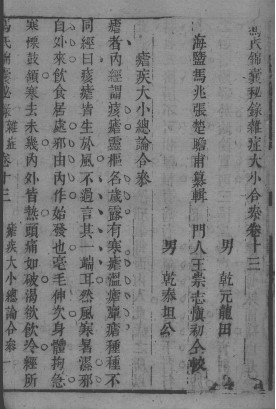 馮氏錦囊秘錄雜症大小合參卷十三
海鹽馮兆張楚瞻甫纂輯
門人王崇志愼初仝較
男 乾元龍田
男 乾泰坦公
瘧疾大小總論合參
瘧者內經謂痎瘧靈樞名歲露有寒瘧溫瘧癉瘧種種不
同經曰痎瘧皆生於風不過言其一端耳然風寒暑濕邪
自外來飲食居處邪由內作始發也毫毛伸欠身體拘急
寒慄鼓頷寒去未幾內外皆熱頭痛如破渴欲飲冷經所
馮氏錦囊秘錄 雜症卷十三
瘧疾大小總論合參 一